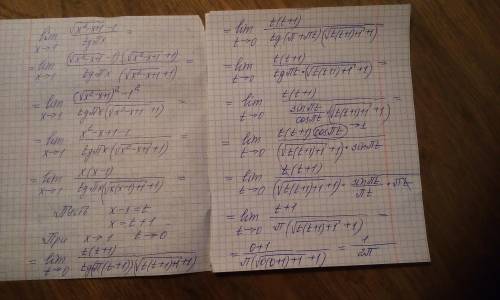 lim x→1 (√(x²-x+1) -1)/(tgπx) =
= lim x→1 ((√(x²-x+1) -1)(√(x²-x+1) +1))/(tgπx (√(x²-x+1) +1)) =
= lim x→1 ((√(x²-x+1))² -1²)/(tgπx (√(x²-x+1) +1)) =
= lim x→1 (x²-x+1-1)/(tgπx (√(x²-x+1) +1)) =
= lim x→1 (x(x-1))/(tgπx (√(x(x-1)+1) +1)) =
Пусть x-x=t
x=t+1
При x→1 t→0
= lim t→0 (t(t+1))/(tg(π(t+1))(√(t(t+1)+1) +1))
= lim t→0 (t(t+1))/(tg(π+πt)(√(t(t+1)+1) +1) =
= lim t→0 (t(t+1))/(tgπt·(√(t(t+1)+1) +1) =
= lim t→0 (t(t+1))/((sinπt/cosπt)·(√(t(t+1)+1) +1) =
= lim t→0 (t(t+1)(cosπt)→1)/((√(t(t+1)+1) +1)·sinπt) =
= lim t→0 (t(t+1))/((√(t(t+1)+1) +1)·(sinπt/πt)·πt) =
= lim t→0 (t+1)/(π(√(t(t+1)+1) +1)) =
= (0+1)/(π(√(0(0+1)+1) +1)) = 1/(2π)